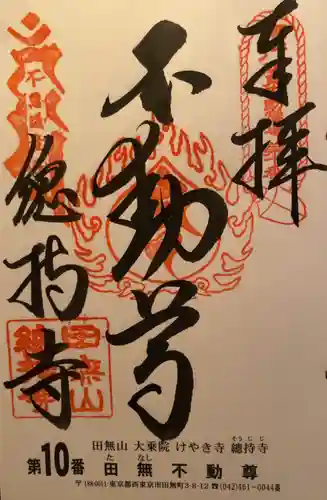 奉拝
不動尊
總持寺
田無山 大乗院 けやき寺 總持寺
そうじじ
第10番 田無不動尊
た なし
東京都西東京市田無町3-8-12 ☎(042)461-0044番